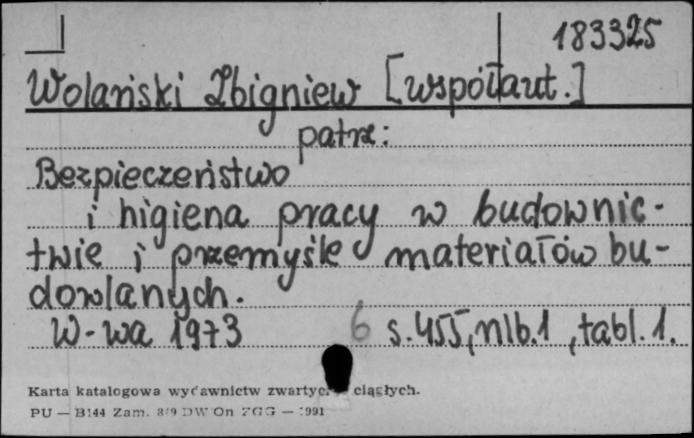 183325
Wolański Zbigniew [współaut.]
patrz:
Bezpieczeństwo
i higiena pracy w budownic-
twie i przemyśle materiałów bu-
dowlanych.
W-wa 1973 6 s. 455, nlb. 1, tabl. 1.
Karta katalogowa wydawnictw zwartych ciągłych.
PU — B144 Zam. DW On ZGG — 1991